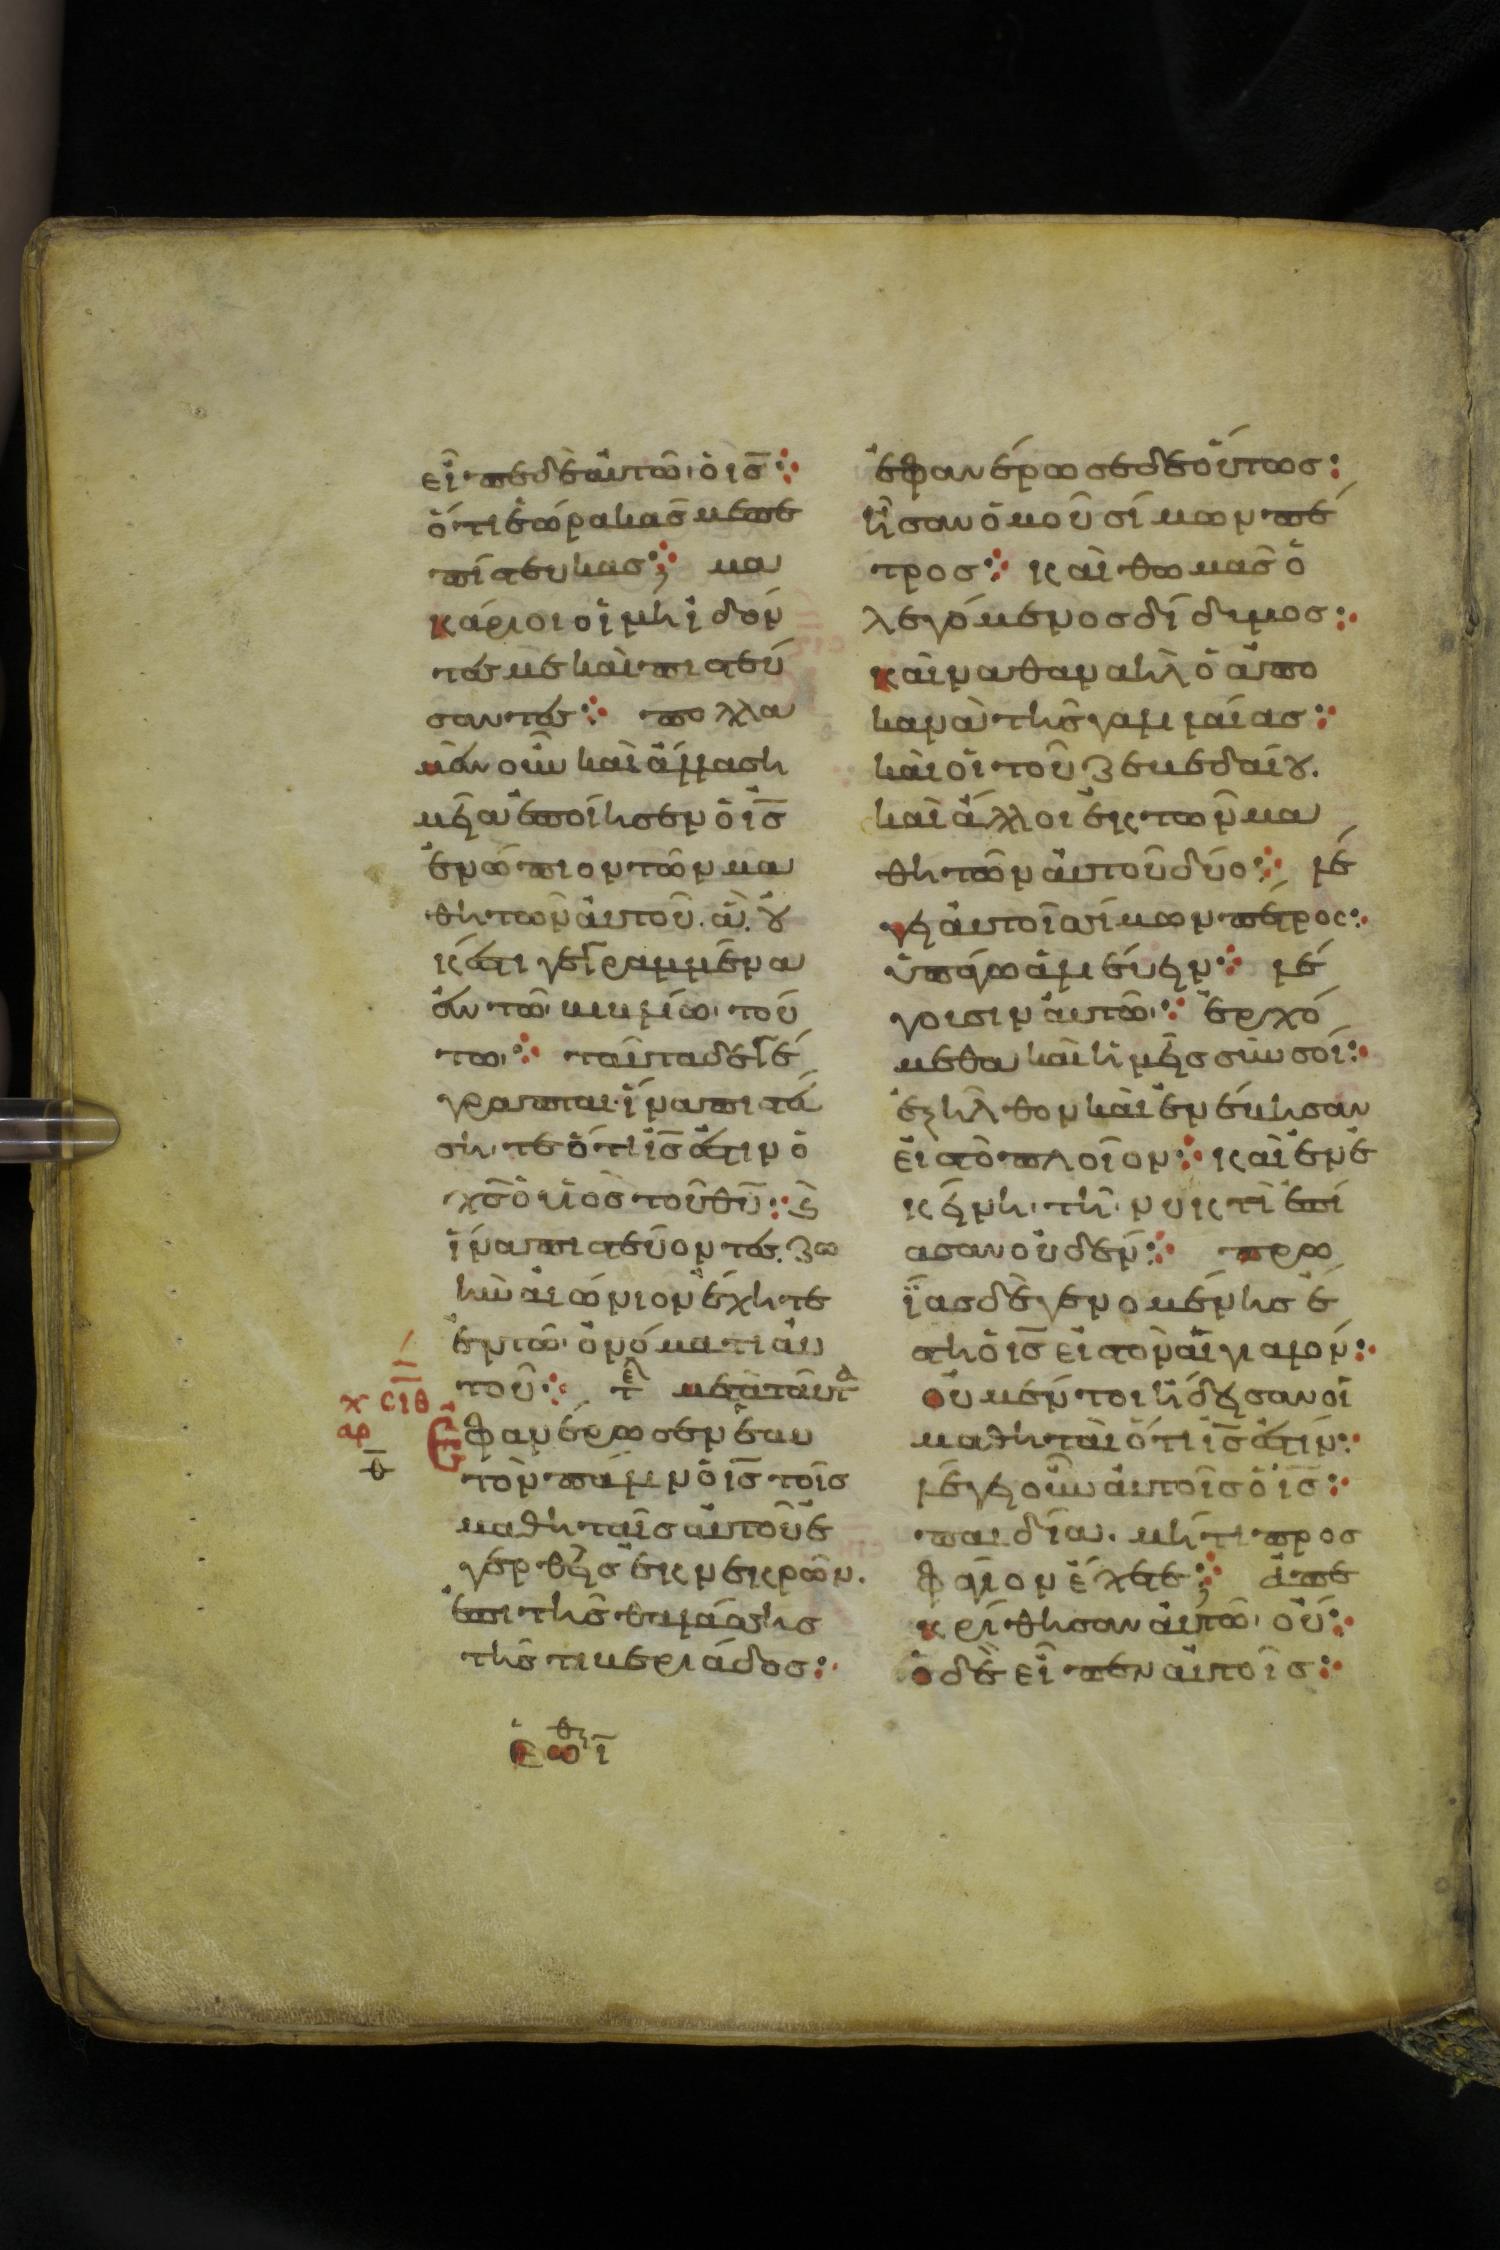 εἶπε δὲ αὐτῶ ὁ ις̅
ὅτι ἑώρακάς με πε
πίστευκας; μα
κάριοι οἱ μὴ ἰδόν
τες με καὶ πιστεύ
σαντες πολλα
μὲν οὖν καὶ ἄλλα ση
μεῖα ἐποίησεν ὁ ις̅
ἐνώπιον τῶν μα
θητῶν αὐτοῦ. ἃ οὐ
κ ἔστι γεγραμμένα
ἐν τῶ βιβλίω τού
τω ταῦτα δὲ γέ
γραπται ἵνα πιστεύ
σητε ὅτι ις̅ ἐστιν ὁ
χς̅ ὁ υἱὸς τοῦ θυ̅ καὶ
ἵνα πιστεύοντες ζω
ὴν αἰώνιον ἔχητε
ἐν τῶ ὀνόματι αὐ
τοῦ τελ μετὰ ταῦτα
σιθ
Ἐφανέρωσεν ἑαυ
τὸν πάλιν ὁ ις̅ τοῖς
μαθηταῖς αὐτοῦ ἐ
γερθεὶς ἐκ νεκρῶν.
ἐπὶ τῆς θαλάσσης
τῆς τιβεριάδος
ἐφανέρωσε δὲ οὕτως
ἦσαν ὁμοῦ σίμων πέ
τρος καὶ θωμᾶς ὁ
λεγόμενος δίδυμος
καὶ ναθαναὴλ ὁ ἀπὸ
κανὰ τῆς γαλιλαίας
καὶ οἱ τοῦ ζεβεδαίου.
καὶ ἄλλοι ἐκ τῶν μα
θητῶν αὐτοῦ δύο λέ
γει αὐτοῖς σίμων πέτρος
ὑπάγω ἁλιεύειν λέ
γουσιν αὐτῶ ἐρχό
μεθα καὶ ἡμεῖς σὺν σοί
ἐξῆλθον καὶ ἐνέβησαν
εἰς τὸ πλοῖον καὶ ἐν ἐ
κείνη τῆ νυκτὶ ἐπί
ασαν οὐδέν πρω
ΐας δὲ γενομένης ἔ
στη ὁ ις̅ εἰς τὸν αἰγιαλόν
οὐ μέντοι ἤδεισαν οἱ
μαθηταὶ ὅτι ις̅ ἐστιν
λέγει οὖν αὐτοῖς ὁ ις̅
παιδία. μήτι προσ
φάγιον ἔχετε; ἀπε
κρίθησαν αὐτῶ οὔ
ὁ δὲ εἶπεν αὐτοῖς